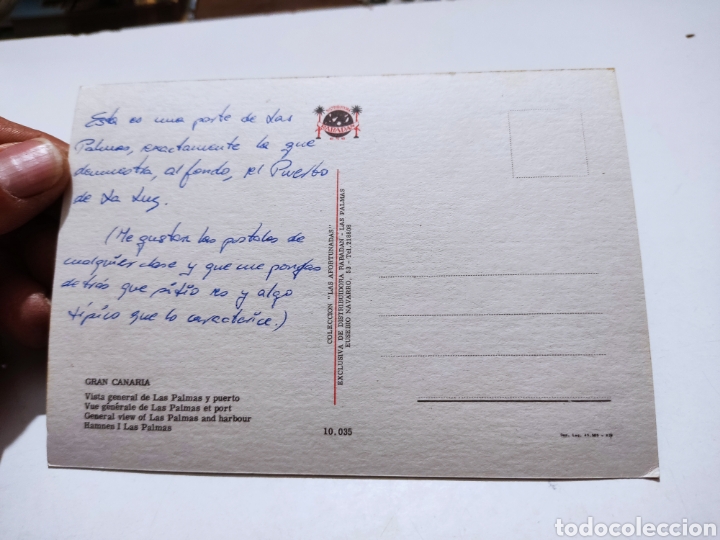 Esta es una parte de Las
Palmas, exactamente la que
demuestra, al fondo, el Puerto
de La Luz.
(Me gustan las postales de
cualquier clase y que me pongas
detrás que sitio es y algo
típico que lo caracterice.)
GRAN CANARIA
Vista general de Las Palmas y puerto
Vue générale de Las Palmas et port
General view of Las Palmas and harbour
Hamnes I Las Palmas
10.035
COLECCION "LAS AFORTUNADAS"
EXCLUSIVA DE DISTRIBUIDORA BADADAN - LAS PALMAS
EUSEBIO NAVARRO, 53 - Tel.
todocoleccion